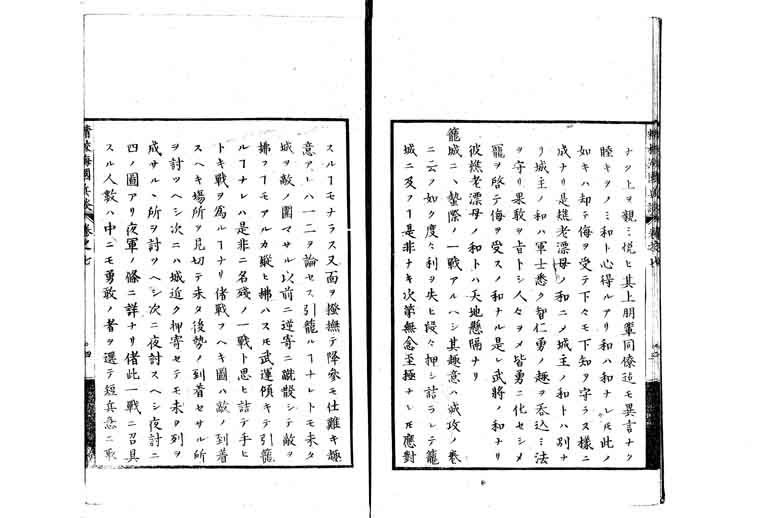 ナツ上ヲ親ミ悦ヒ其上朋輩同僚迄モ異言ナク
睦キヲノミ和ト心得ルアリ和ハ和ナレ𪜈此ノ
如キハ却テ侮ヲ受テ下々モ下知ヲ守ラス様ニ
成ナリ是趙老漂母ノ和ニメ城主ノ和トハ別ナ
リ城主ノ和ハ軍士悉ク智仁勇ノ趣ヲ呑込ミ法
ヲ守リ果敢ヲ旨トシ人々ヲメ皆勇ニ化セシメ
寵ヲ啓テ侮ヲ受スノ和ナル是レ武将ノ和ナリ
彼樵老漂母ノ和トハ天地懸隔ナリ
籠城ニハ墊際ノ一戦アルヘシ其趣意ハ城攻ノ巻
ニ云フ如ク度々利ヲ失ヒ段々押シ詰ラレテ籠
城ニ及フヿ是非ナキ次第無念至極ナレ𪜈應對
スルヿモナラス又面ヲ撥撫テ降参モ仕難キ趣
意アレハ一二ヲ論セス引籠ルヿナレトモ未タ
城ヲ敵ノ圍マサル以前ニ逆寄ニ蹴散シテ敵ヲ
拂フヿモアルカ縦ヒ拂ハスモ武運傾キテ引籠
ルヿナレハ是非ニ名残ノ一戦ト思ヒ詰テ手ヒ
トキ戦ヲ為ルヿナリ偖戦フヘキ圖ハ敵ノ到着
スヘキ場所ヲ見切テ未タ後勢ノ到着セサル所
ヲ討ツヘシ次ニハ城近ク押寄セテモ未タ列ヲ
成サルノ所ヲ討ツヘシ次ニ夜討スヘシ夜討ニ
四ノ圖アリ夜軍ノ條ニ詳ナリ偖此一戦ニ召具
スル人数ハ中ニモ勇敢ノ者ヲ選テ短兵急ニ取
海國兵談 巻之七
四